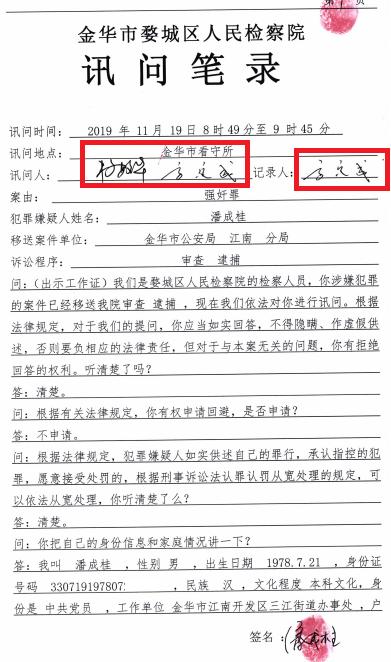 第1页
金华市婺城区人民检察院
讯问笔录
讯问时间： 2019 年 11 月 19 日 8 时 49 分至 9 时 45 分
讯问地点： 金华市看守所
讯问人： 记录人：
案由： 强奸罪
犯罪嫌疑人姓名： 潘成桂
移送案件单位： 金华市公安局 江南 分局
诉讼程序： 审查 逮捕
问：（出示工作证）我们是婺城区人民检察院的检察人员，你涉嫌犯罪
的案件已经移送我院审查 逮捕 ，现在我们依法对你进行讯问。根据
法律规定，对于我们的提问，你应当如实回答，不得隐瞒、作虚假供
述，否则要负相应的法律责任，但对于与本案无关的问题，你有拒绝
回答的权利。听清楚了吗？
答：清楚。
问：根据有关法律规定，你有权申请回避，是否申请？
答：不申请。
问：根据法律规定，犯罪嫌疑人如实供述自己的罪行，承认指控的犯
罪，愿意接受处罚的，根据刑事诉讼法认罪认罚从宽处理的规定，可
以依法从宽处理，你听清楚了么？
答：清楚。
问：你把自己的身份信息和家庭情况讲一下？
答：我叫 潘成桂 ，性别 男 ，出生日期 1978.7.21 ，身份证
号码 330719197807: ，民族 汉 ，文化程度 本科文化，身
份是 中共党员 ，工作单位 金华市江南开发区三江街道办事处 ，户
签名： 潘成桂